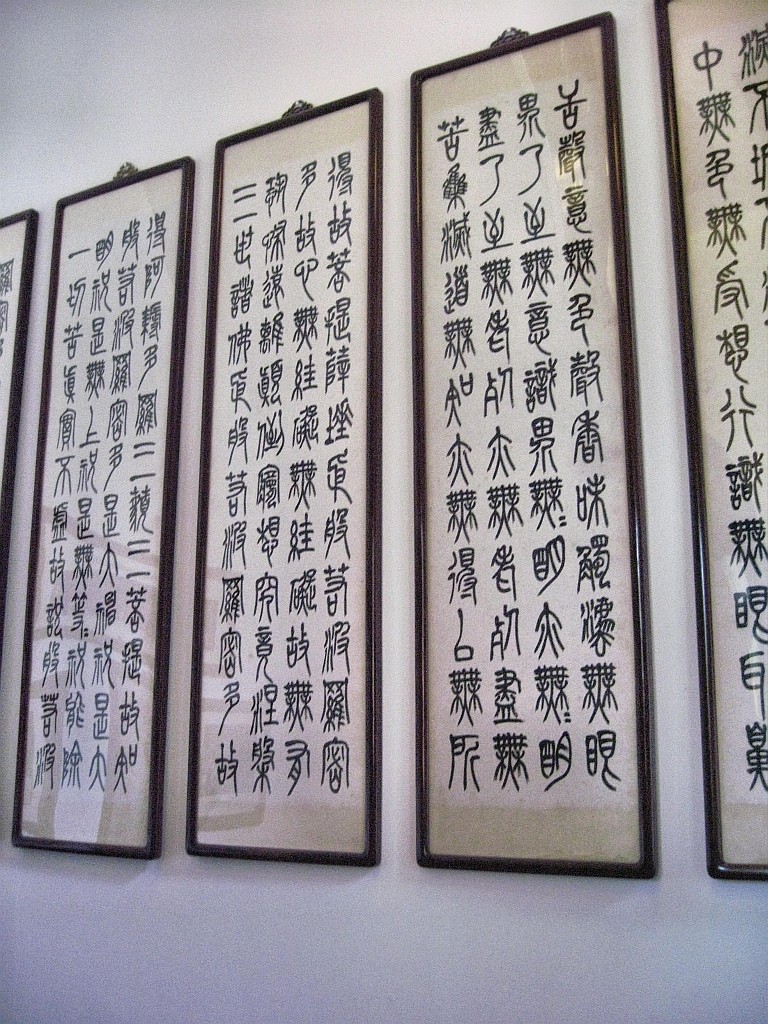 滅不垢不
中無色無受想行識無眼耳鼻
舌聲意無色聲香味觸法無眼
界乃至無意識界無〻明亦無〻明
盡乃至無老死亦無老死盡無
苦集滅道無知亦無得以無所
得故菩提薩埵依般若波羅密
多故心無絓礙無絓礙故無有
恐怖遠離顛倒夢想究竟涅槃
三世諸佛依般若波羅密多故
得阿耨多羅三藐三菩提故知
般若波羅密多是大神祝是大
明祝是無上祝是無等〻祝能除
一切苦真實不虛故說般若波
羅密